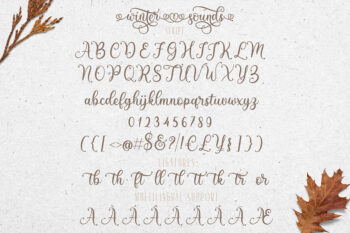 winter sounds
SCRIPT
ABCDEFGHIJKLM
NOPQRSTUVWXYZ
abcdefghijklmnopqrstuvwxyz
0123456789
LIGATURES
tb th ft ll tl tt tk tr er
MULTILINGUAL SUPPORT